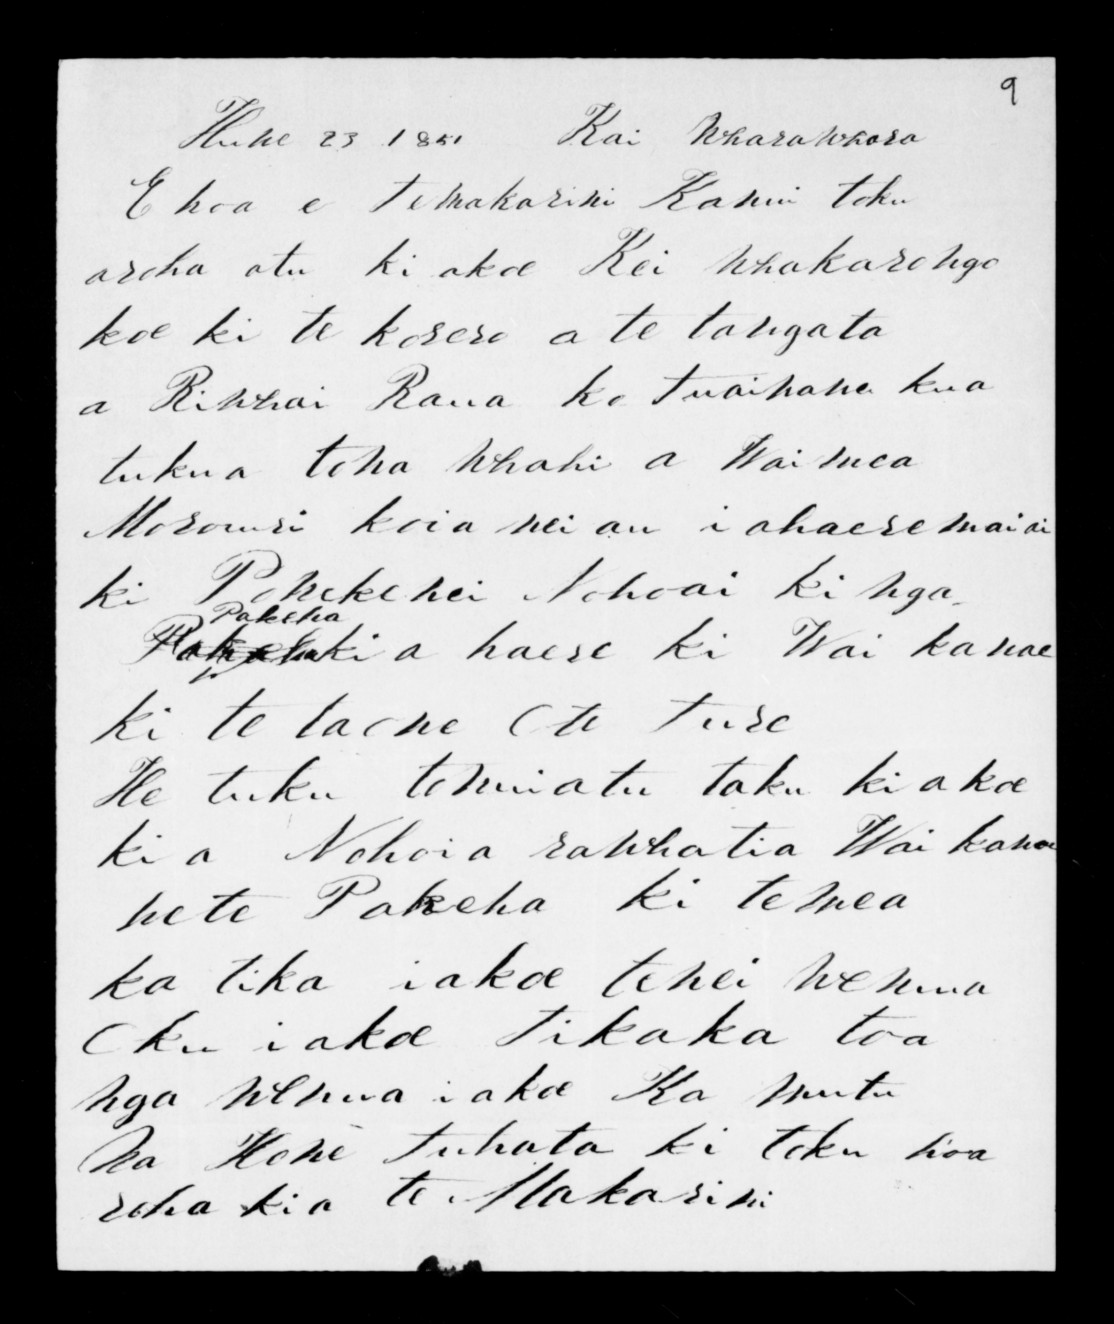 9
Hune 23 1851 Kai Wharawhara
E hoa e temakarini Kanui toku
aroha atu ki akoe Kei whakarongo
koe ki te korero a te tangata
a Riwhai Raua ko tuainane kua
tukua tona whahi a Waimea
Morouri koia nei au i ahaere mai ai
ki Ponekenei Nohoai ki nga
Pakeha
kia haere ki Wai kanae
ki te taone O te ture
He tuku tonuiatu taku ki akoe
kia Nohoia rawhatia Wai kanae
nete Pakeha ki temea
ka tika iakoe tenei wenua
Oku iakoe tikaka toa
nga wenua iakoe Ka mutu
Na Hone tuhata ki toku hoa
roha kia te Makarini